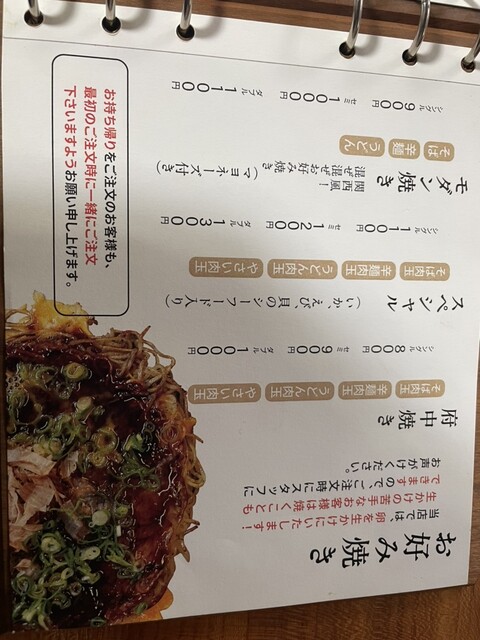 お好み焼き
当店では、卵を生かけにいたします！
生かけの苦手なお客様は焼くことも
できますので、ご注文時にスタッフに
お声がけください。
府中焼き
そば肉玉 辛麺肉玉 うどん肉玉 やさい肉玉
シングル 800円 セミ 900円 ダブル 1000円
スペシャル (いか、えび、貝のシーフード入り)
そば肉玉 辛麺肉玉 うどん肉玉 やさい肉玉
シングル 1100円 セミ 1200円 ダブル 1300円
モダン焼き 関西風ー
混ぜ混ぜお好み焼き (マヨネーズ付き)
そば 辛麺 うどん
シングル 900円 セミ 1000円 ダブル 1100円
お持ち帰りをご注文のお客様も、
最初のご注文時に一緒にご注文
下さいますようお願い申し上げます。